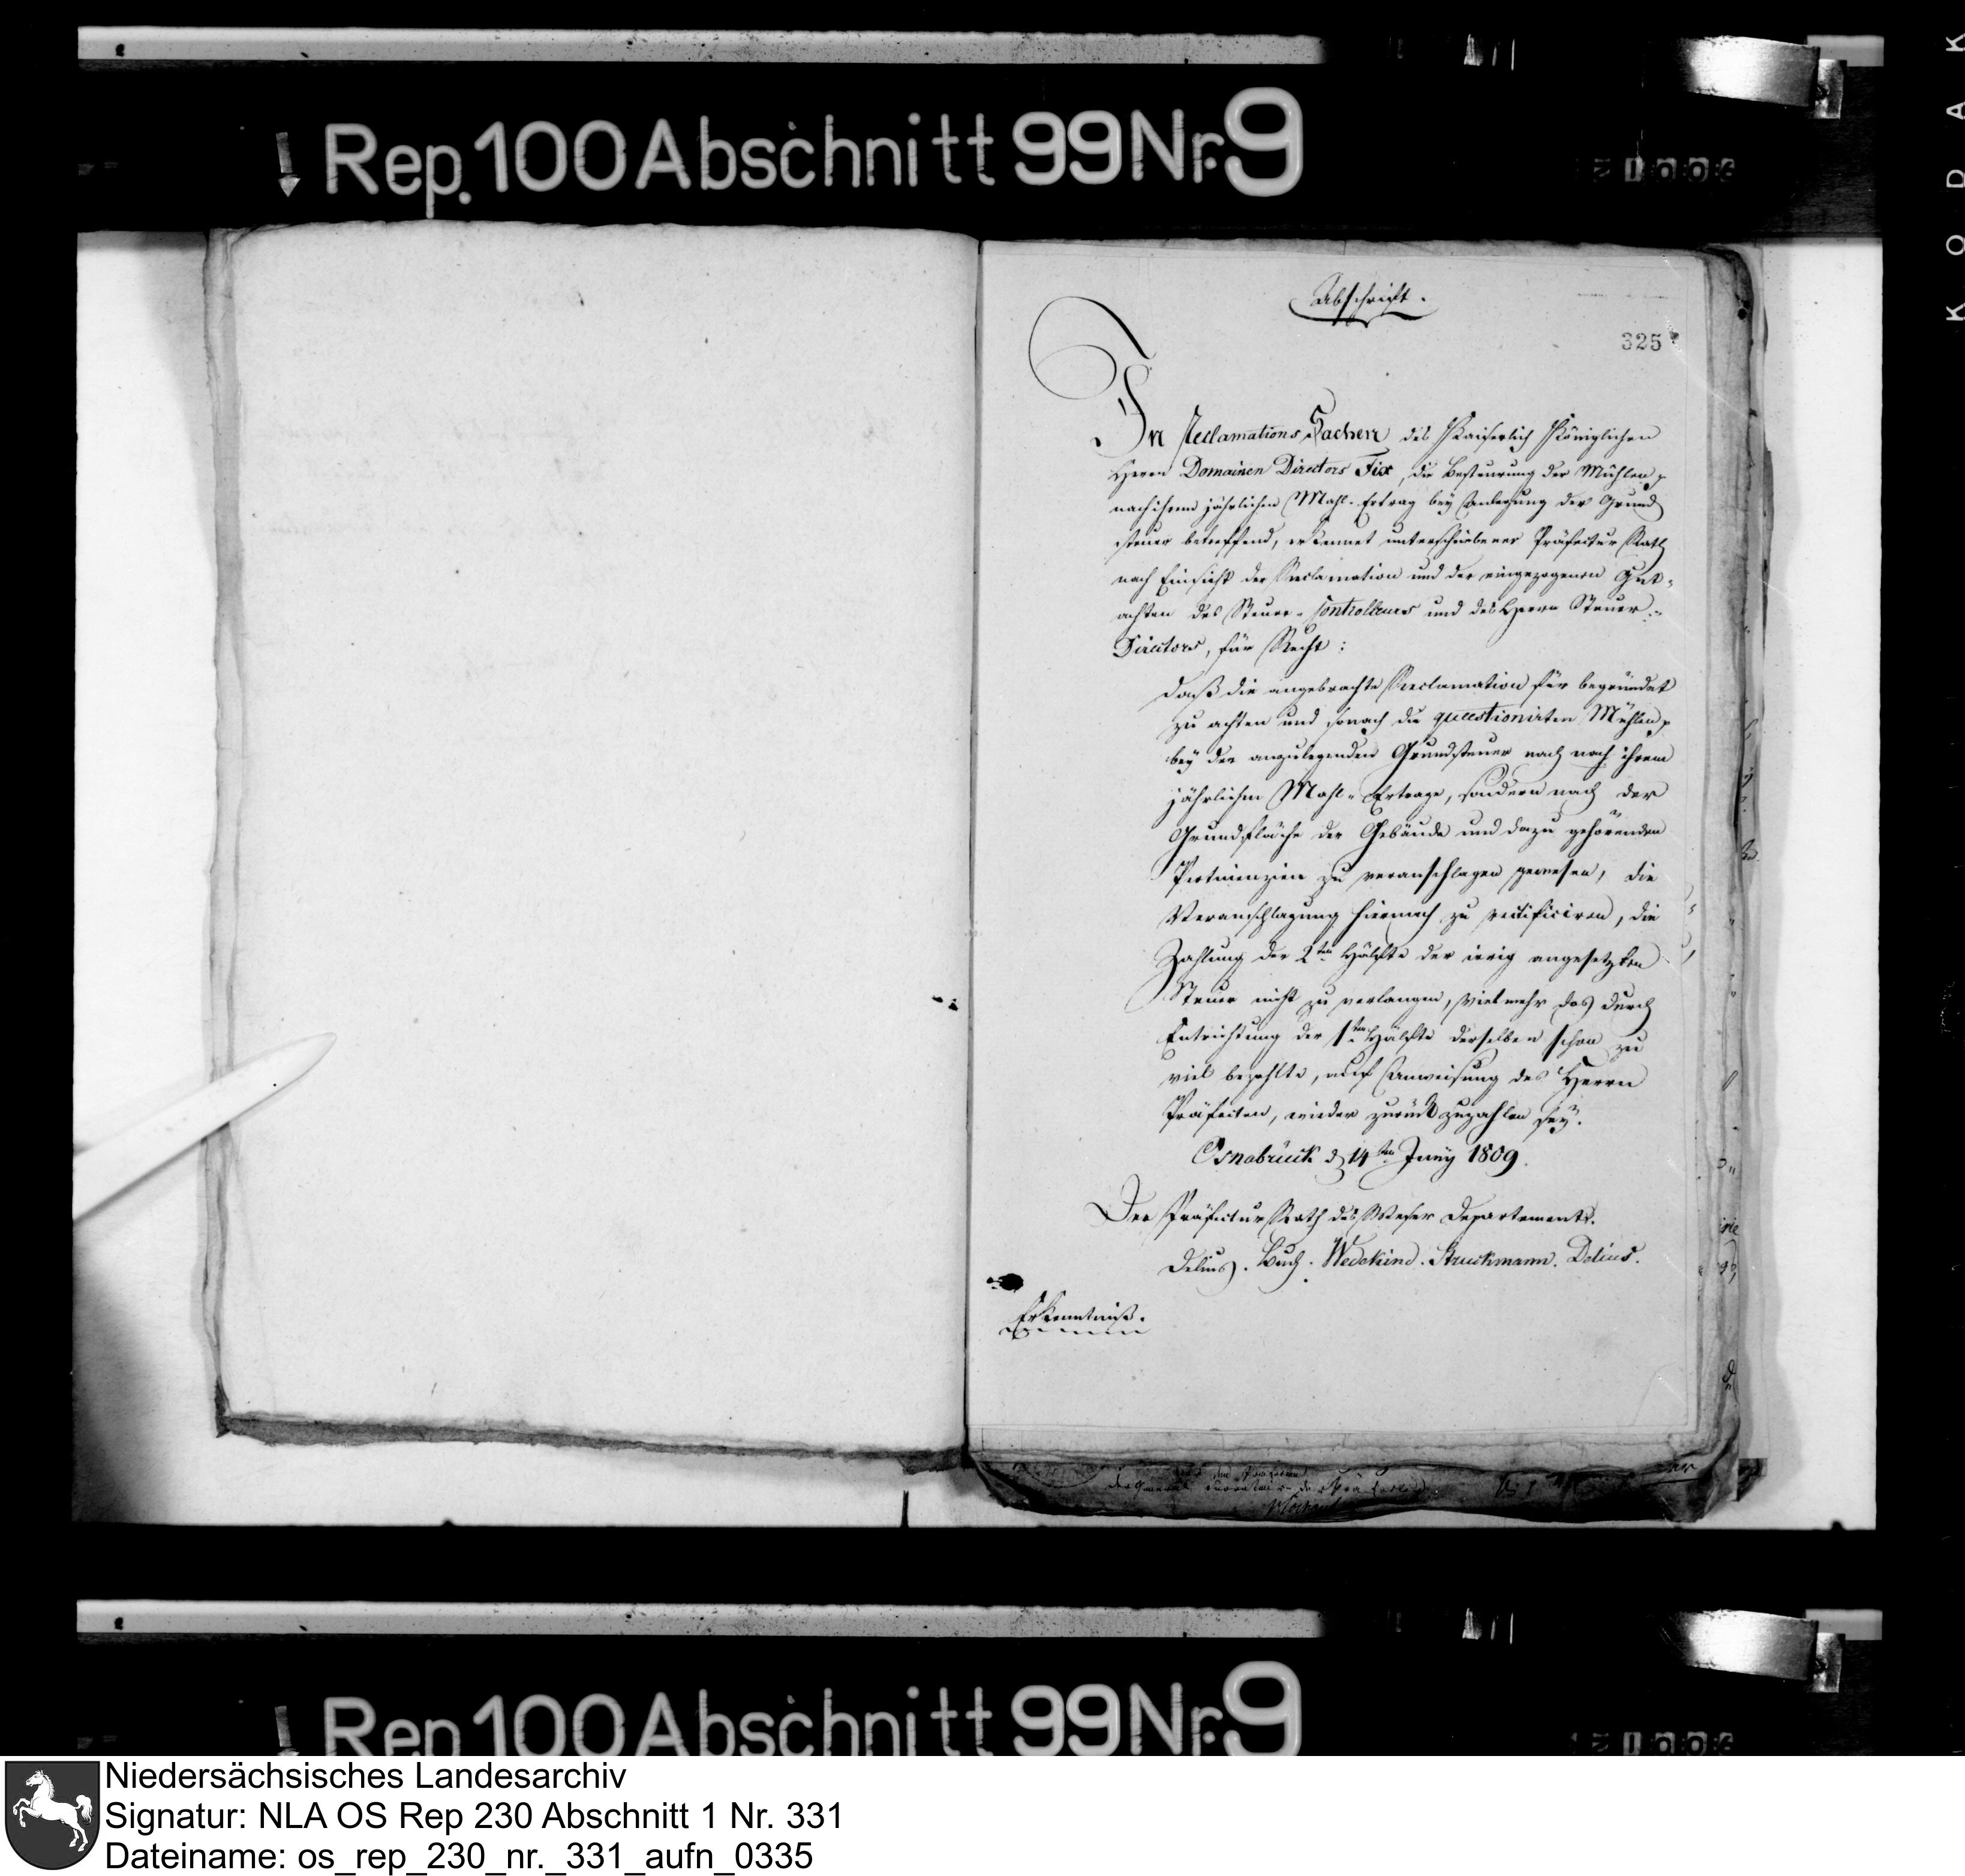 KODAK
Rep. 100 Abschnitt 99 Nr. 9
Abschrift.
325
In Reclamations Sachen des Kaiserlich Königlichen
Herrn Domainen Directors Fix, die Besteurung der Mühlen
nach ihrem jährlichen Mahl-Ertrag bey Anlegung der Grund
steuer betreffend, erkennet unterschriebener Präfectur Rath
nach Einsicht der Reclamation und der eingezogenen Gut-
achten des Steuer-Controlleurs und des Herrn Steuer-
Directors, für Recht:
daß die angebrachte Reclamation für begründet
zu achten und sonach die quaestionirten Mühlen
bey der anzulegenden Grundsteuer nach ihrem
jährlichen Mahl-Ertrage, sondern nach der
Grundfläche der Gebäude und dazu gehörenden
Pertinenzien zu veranschlagen gewesen, die
Veranschlagung hiernach zu rectificiren, die
Zahlung der 2ten Hälfte der irrig angesetzten
Steuer nicht zu verlangen, vielmehr das durch
Entrichtung der 1ten Hälfte derselben schon zu
viel bezahlte, auf Anweisung des Herrn
Präfecten, wieder zurück zuzahlen sey.
Osnabrück d 14ten Juny 1809.
Der Präfectur Rath des Weser Departements.
Delius. Buch. Wedekind. Struckmann. Delius.
Erkenntniß.
Rep. 100 Abschnitt 99 Nr. 9
Niedersächsisches Landesarchiv
Signatur: NLA OS Rep 230 Abschnitt 1 Nr. 331
Dateiname: os_rep_230_nr._331_aufn_0335